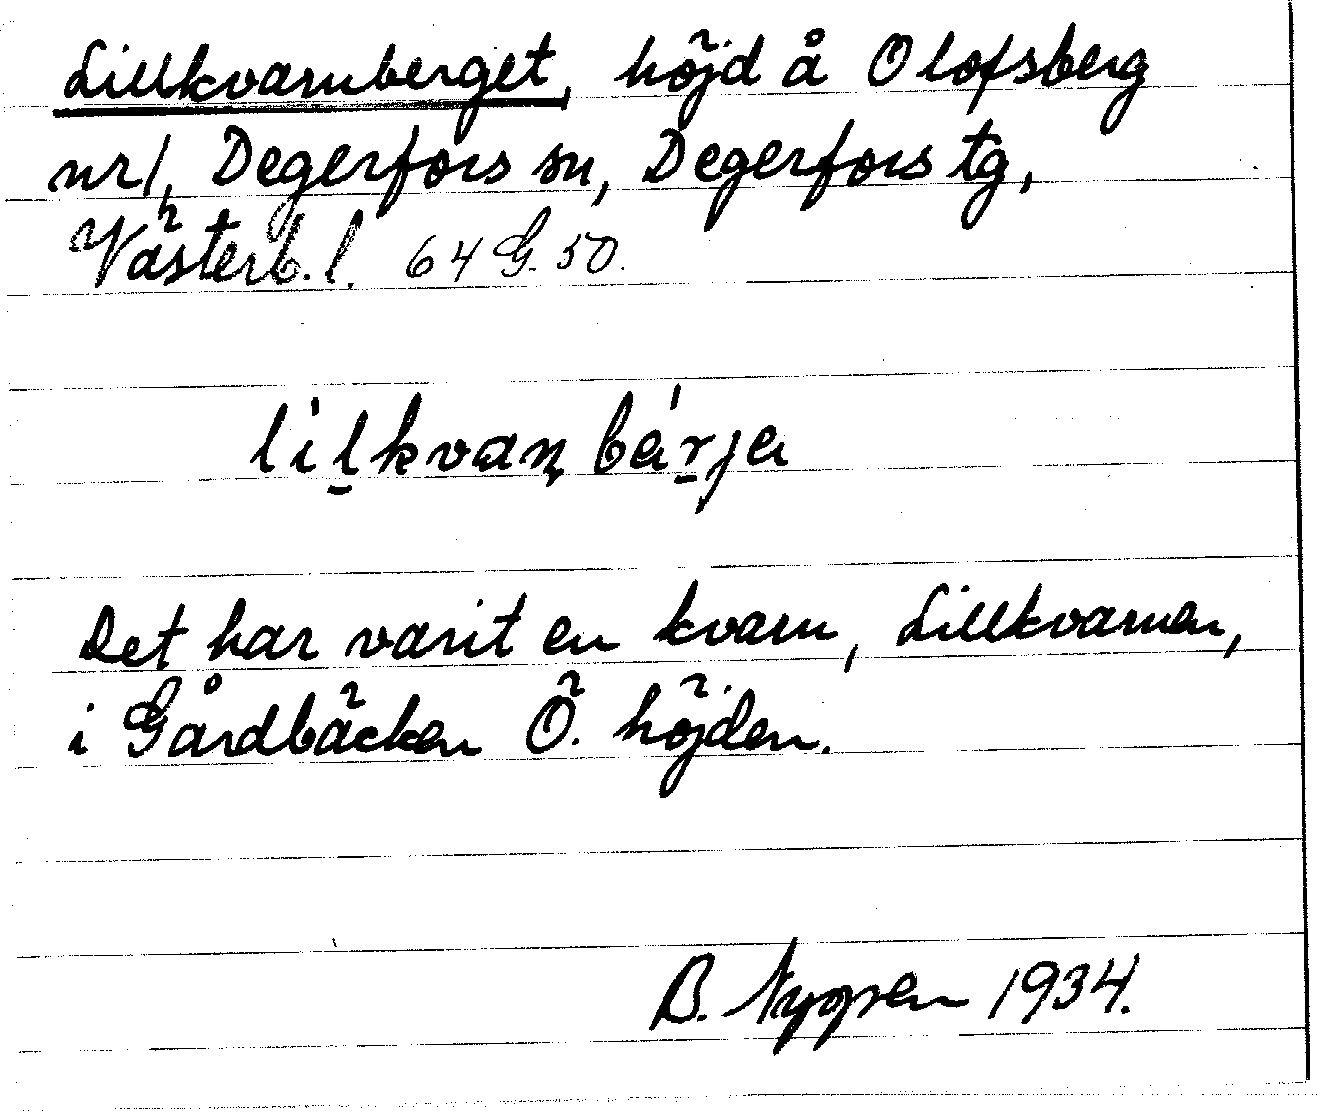 Lillkvarnberget, höjd å Olofsberg
nr 1, Degerfors sn, Degerfors tg,
Västerb. l. 64 G. 50.
li̍l̠kvaɳ bár̠ja
Det har varit en kvarn, Lillkvarnen,
i Gårdbäcken Ö. höjden.
B. Nyqvsen 1934.